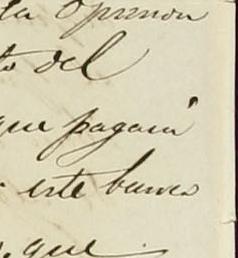 la opinion
to del
que pagará
este banco
que